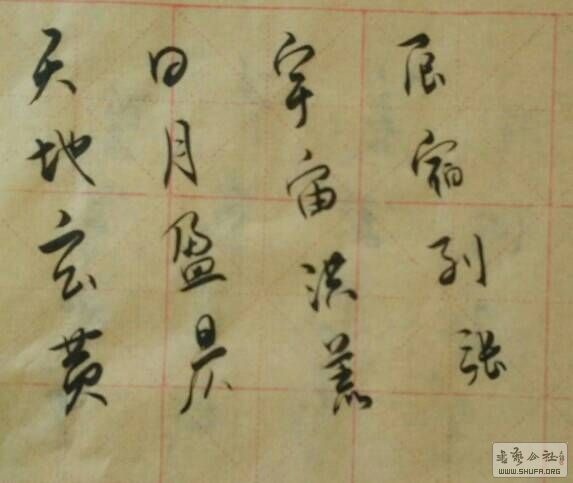 天地玄黄
日月盈昃
宇宙洪荒
辰宿列张
书艺公社
WWW.SHUFA.ORG